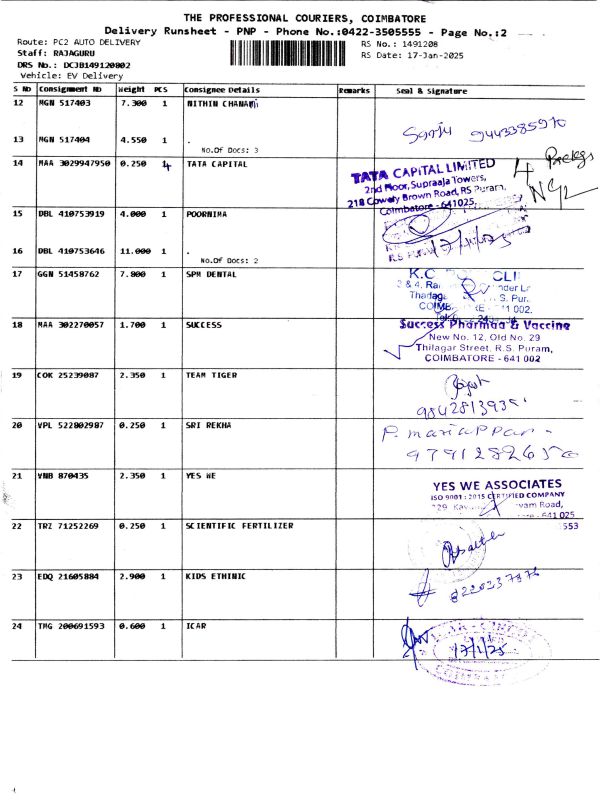 THE PROFESSIONAL COURIERS, COIMBATORE
Delivery Runsheet - PNP - Phone No.:0422-3505555 - Page No.:2
Route: PC2 AUTO DELIVERY
RS No.: 1491208
Staff: RAJAGURU
RS Date: 17-Jan-2025
DRS No.: DCJB149120802
Vehicle: EV Delivery
S No Consignment No Weight PCS Consignee Details Remarks Seal & Signature
12 MGN 517403 7.300 1 NITHIN CHANAW
13 MGN 517404 4.550 1 .
No.Of Docs: 3
9443385970
14 MAA 3029947950 0.250 TATA CAPITAL
TATA CAPITAL LIMITED
2nd Floor, Supraaja Towers,
218 Cowely Brown Road, RS Puram,
Coimbatore - 641025.
4
15 DBL 410753919 4.000 1 POORNIMA
17/1/25
16 DBL 410753646 11.000 1 .
No.Of Docs: 2
17 GGN 51458762 7.800 1 SPM DENTAL
18 MAA 302270057 1.700 1 SUCCESS
Success Pharmaa & Vaccine
New No. 12, Old No. 29
Thilagar Street, R.S. Puram,
COIMBATORE - 641 002
19 COK 25239087 2.350 1 TEAM TIGER
20 VPL 522802987 0.250 1 SRI REKHA
P. mariappan -
9791282650
21 VNB 870435 2.350 1 YES WE
YES WE ASSOCIATES
ISO 9001 : 2015 CERTIFIED COMPANY
Road,
641 025
22 TRZ 71252269 0.250 1 SCIENTIFIC FERTILIZER
553
23 EDQ 21605884 2.900 1 KIDS ETHINIC
24 TMG 200691593 0.600 1 ICAR
17/1/25